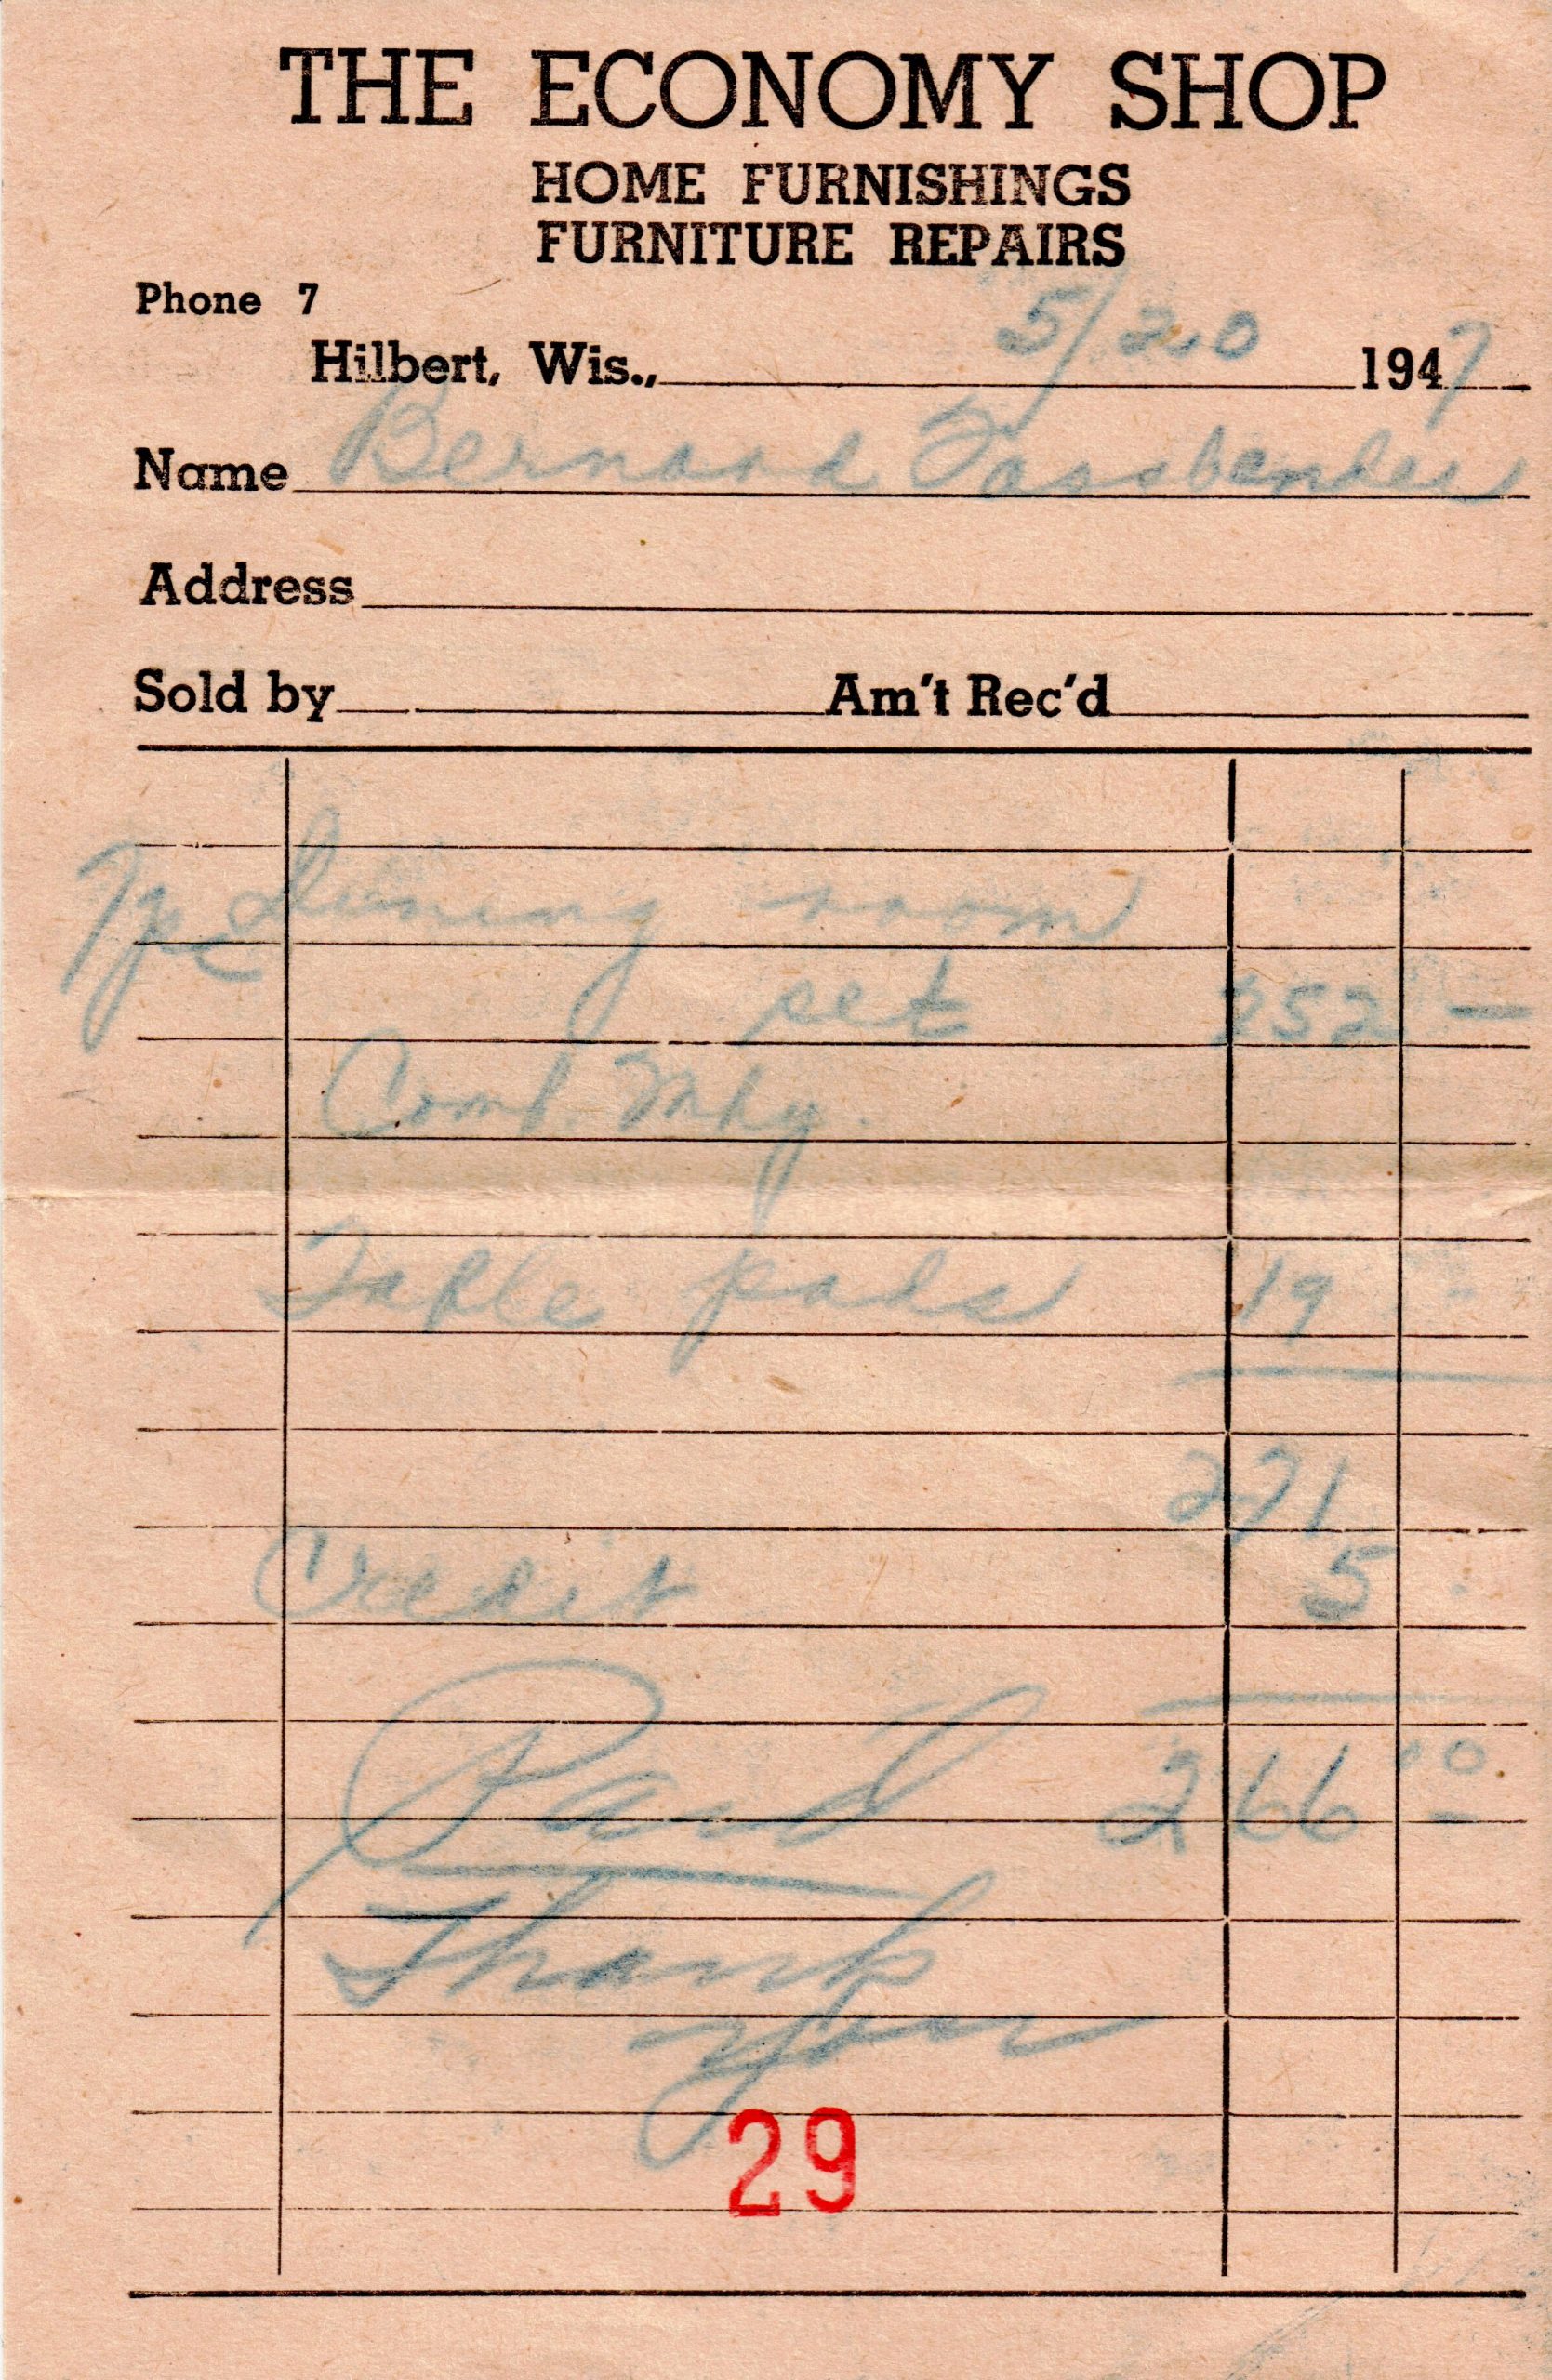 THE ECONOMY SHOP
HOME FURNISHINGS
FURNITURE REPAIRS
Phone 7
Hilbert, Wis., 5/20 1947
Name Bernard Fassbender
Address
Sold by Am't Rec'd
7 pc Dining room
set 252 —
Comb. Mhg.
Table pads 19 -
271
Credit 5
Paid 266 00
Thank
you
29